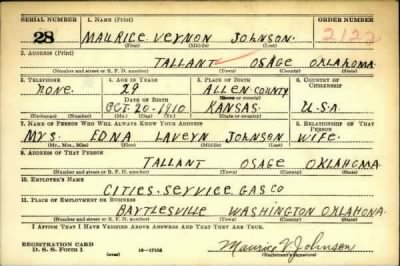 SERIAL NUMBER 1. NAME (Print) ORDER NUMBER
28 MAURICE VERNON JOHNSON. 2122
(First) (Middle) (Last)
2. ADDRESS (Print)
TALLANT OSAGE OKLAHOMA
(Number and street or R. F. D. number) (Town) (County) (State)
3. TELEPHONE 4. AGE IN YEARS 5. PLACE OF BIRTH 6. COUNTRY OF CITIZENSHIP
NONE. 29 ALLEN COUNTY
DATE OF BIRTH (Town or county)
OCT. 20-1910 KANSAS. U.S.A
(Exchange) (Number) (Mo.) (Day) (Yr.) (State or country)
7. NAME OF PERSON WHO WILL ALWAYS KNOW YOUR ADDRESS 8. RELATIONSHIP OF THAT PERSON
MRS. EDNA LAVERN JOHNSON WIFE.
(Mr., Mrs., Miss) (First) (Middle) (Last)
9. ADDRESS OF THAT PERSON
TALLANT OSAGE OKLAHOMA
(Number and street or R. F. D. number) (Town) (County) (State)
10. EMPLOYER'S NAME
CITIES. SERVICE. GAS CO
11. PLACE OF EMPLOYMENT OR BUSINESS
BARTLESVILLE WASHINGTON OKLAHOMA.
(Number and street or R. F. D. number) (Town) (County) (State)
I AFFIRM THAT I HAVE VERIFIED ABOVE ANSWERS AND THAT THEY ARE TRUE.
REGISTRATION CARD
D. S. S. Form 1 16—17105 Maurice V. Johnson
(Registrant's signature)